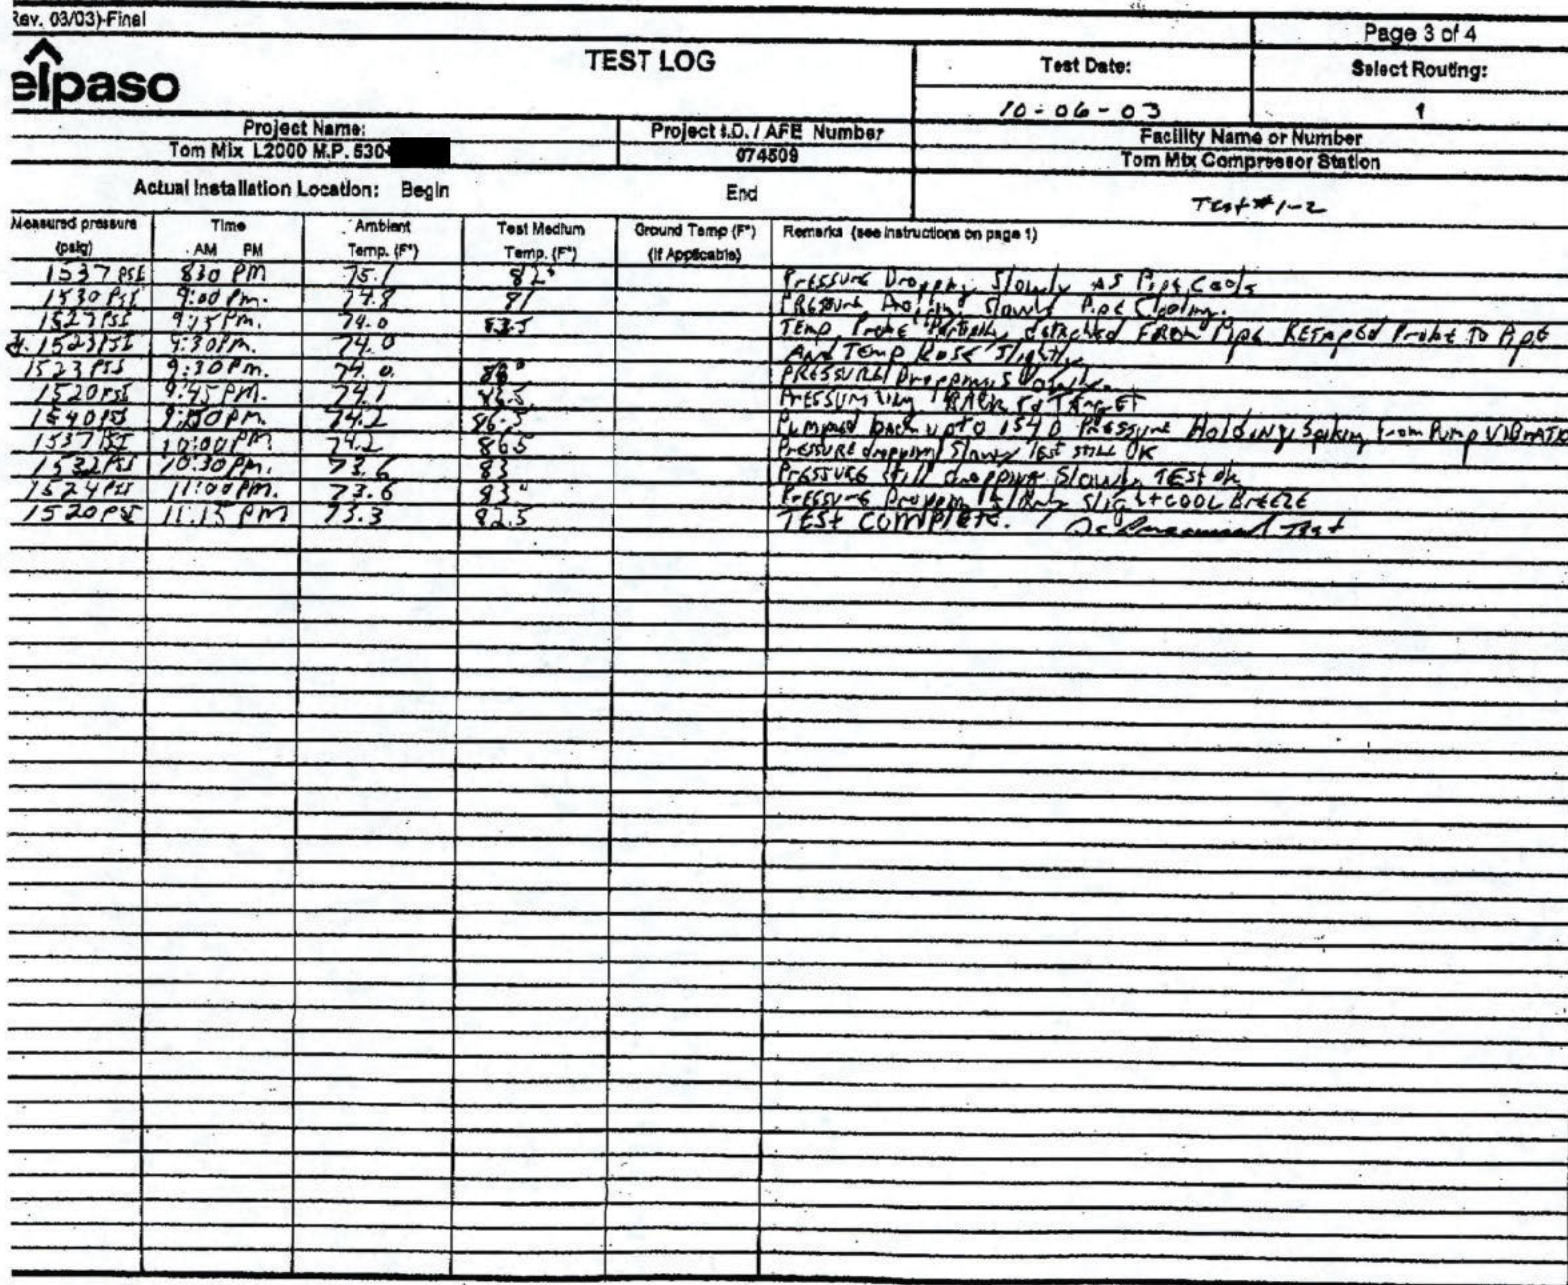 Rev. 03/03)-Final
Page 3 of 4
elpaso
TEST LOG
Test Date:
Select Routing:
10-06-03
1
Project Name:
Project I.D. / AFE Number
Facility Name or Number
Tom Mix L2000 M.P. 530
074509
Tom Mix Compressor Station
Actual Installation Location: Begin
End
Test #1-2
Measured pressure
(psig)
Time
AM PM
Ambient
Temp. (F°)
Test Medium
Temp. (F°)
Ground Temp (F°)
(If Applicable)
Remarks (see instructions on page 1)
1537 PSI 830 PM 75.1 82° Pressure Dropping Slowly AS Pipe Cools
1530 PSI 9:00 PM. 74.8 81 PRESSURE Dropping Slowly Pipe Cooling.
1527 PSI 9:15 PM. 74.0 83.5 TEMP Probe Partially detached FROM Pipe RETAPED Probe To Pipe
1523 PSI 9:30 PM. 74.0 And TEMP Rose Slightly
1523 PSI 9:30 PM. 74.0 PRESSURE Dropping
1520 PSI 9:45 PM. 74.1 86.5 Pressuring BACK to TARGET
1540 PSI 9:50 PM. 74.2 86.5 Pumped back up to 1540 Pressure Holding, Spiking from Pump VIBRATIO
1537 PSI 10:00 PM 74.2 86.5 Pressure dropping Slowly Test still OK
1532 PSI 10:30 PM. 73.6 83 Pressure still dropping Slowly TEST OK
1524 PSI 11:00 PM. 73.6 83° Pressure Dropping Slight COOL BREEZE
1520 PSI 11:15 PM 73.3 82.5 TEST COMPLETE. Test